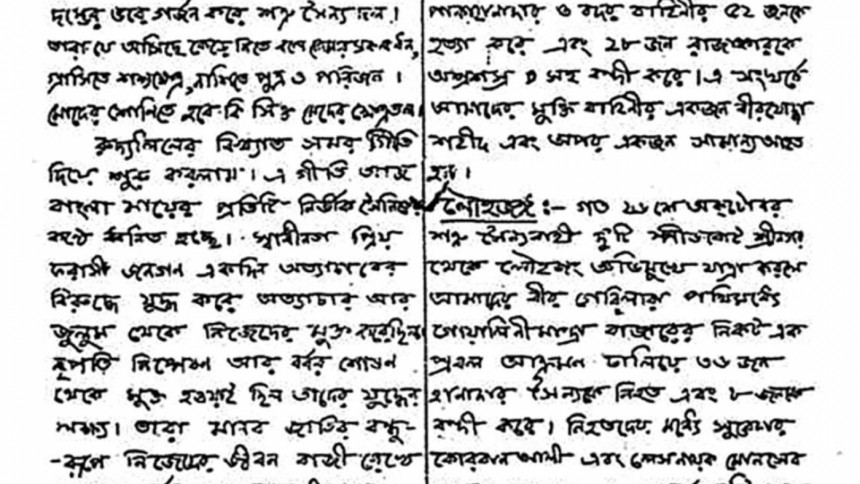 দম্ভের ভরে গর্জন করে শত্রু সৈন্যদল।
তারা যে আসিছে কেড়ে নিতে বলে
গ্রাসিতে শস্যক্ষেত্র, নাশিতে পুত্র ও পরিজন।
মোদের শোণিতে হবে কি সিক্ত মোদের
রুদ্যলিনের বিখ্যাত সমর গীতি
দিয়ে শুরু করলাম। এ গীতি আজ
বাংলা মায়ের প্রতিটি নির্ভীক সৈনিকের
কণ্ঠে ধ্বনিত হচ্ছে। স্বাধীনতা প্রিয়
ফরাসী জনগন একদিন অত্যাচারের
বিরুদ্ধে যুদ্ধ করে অত্যাচার আর
জুলুম থেকে নিজেদের মুক্ত করেছিল।
নৃপতি নিষ্পেষণ আর বর্বর শোষণ
থেকে মুক্ত হওয়াই ছিল তাদের যুদ্ধের
লক্ষ্য। তারা মানব জাতির বন্ধু-
-রূপে নিজেদের জীবন বাজী রেখে
পাকহানাদার ও বদর বাহিনীর ৫২ জনকে
হত্যা করে এবং ২৮ জন রাজাকারকে
অস্ত্রশস্ত্র সহ বন্দী করে। এ সংঘর্ষে
আমাদের মুক্তি বাহিনীর একজন বীরযোদ্ধা
শহীদ এবং অপর একজন সামান্য আহত
হন।
লৌহজং :- গত ২৬ শে অক্টোবর
শত্রু সৈন্যবাহী দু'টি স্পীডবোট শ্রীনগর
থেকে লৌহজং অভিমুখে যাত্রা করলে
আমাদের বীর গেরিলারা পথিমধ্যে
গোয়ালিনীমান্দ্রা বাজারের নিকট এক
প্রবল আক্রমন চালিয়ে ৩৬ জন
হানাদার সৈন্যকে নিহত এবং ৮ জনকে
বন্দী করে। নিহতদের মধ্যে সুবেদার
কোরবান আলী এবং লেসনায়ক